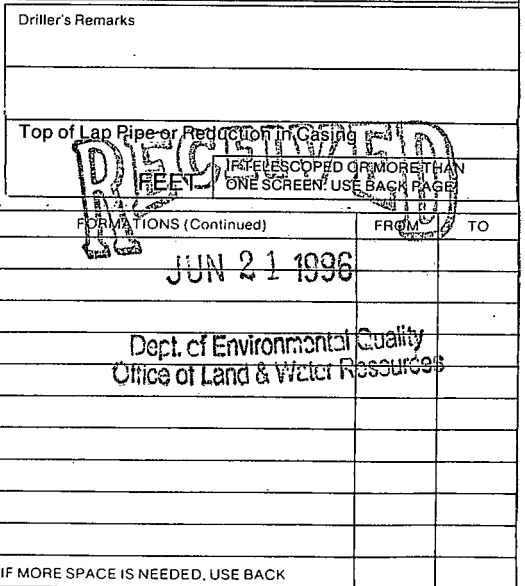 Driller's Remarks
Top of Lap Pipe or Reduction in Casing
RECEIVED
FEET
IF TELESCOPED OR MORE THAN
ONE SCREEN, USE BACK PAGE
FORMATIONS (Continued) FROM TO
JUN 21 1996
Dept. of Environmental Quality
Office of Land & Water Resources
IF MORE SPACE IS NEEDED, USE BACK